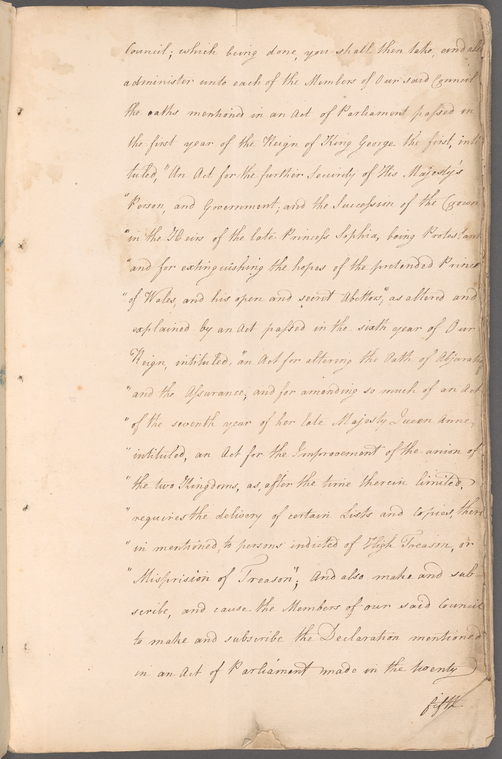 Council; which being done, you shall then take, and also
administer unto each of the Members of Our said Council
the oaths mentioned in an Act of Parliament passed in
the first year of the Reign of King George the first, inti
tuled, "An Act for the further Security of His Majesty's
"Person, and Government, and the Succession of the Crown
"in the Heirs of the late Princess Sophia, being Protestant
"and for extinguishing the hopes of the pretended Prince
"of Wales, and his open and secret Abettors", as altered and
explained by an Act passed in the sixth year of Our
Reign, intituled, "an Act for altering the Oath of Abjuratio
"and the Assurance; and for amending so much of an Act
"of the seventh year of her late Majesty Queen Anne,
"intituled, an Act for the Improvement of the union of
"the two Kingdoms, as, after the time therein limited,
"requires the delivery of certain Lists and Copies, there
"in mentioned, to persons indicted of High Treason, or
"Misprision of Treason"; And also make and sub-
scribe, and cause the Members of our said Council
to make and subscribe the Declaration mentioned
in an Act of Parliament made in the twenty
fifth